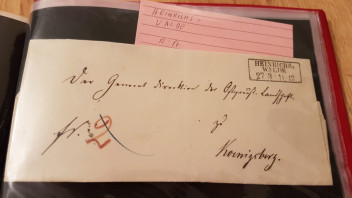 HEINRICHS-
WALDE
HEINRICHS-
WALDE
27 3 11-12
Der General Direktion der Ostpreuß. Landschaft
zu
Koenigsberg.
fr.